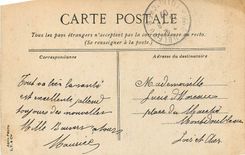 CARTE POSTALE
Tous les pays étrangers n'acceptent pas la correspondance au recto.
(Se renseigner à la poste)
Correspondance
Adresse du destinataire
Mademoiselle
Tout va très la santé
est excellente attend
toujours de nouvelles
Mille baisers
Maurice
Lucie
place du Marché
Mondoubleau
Loir et Cher